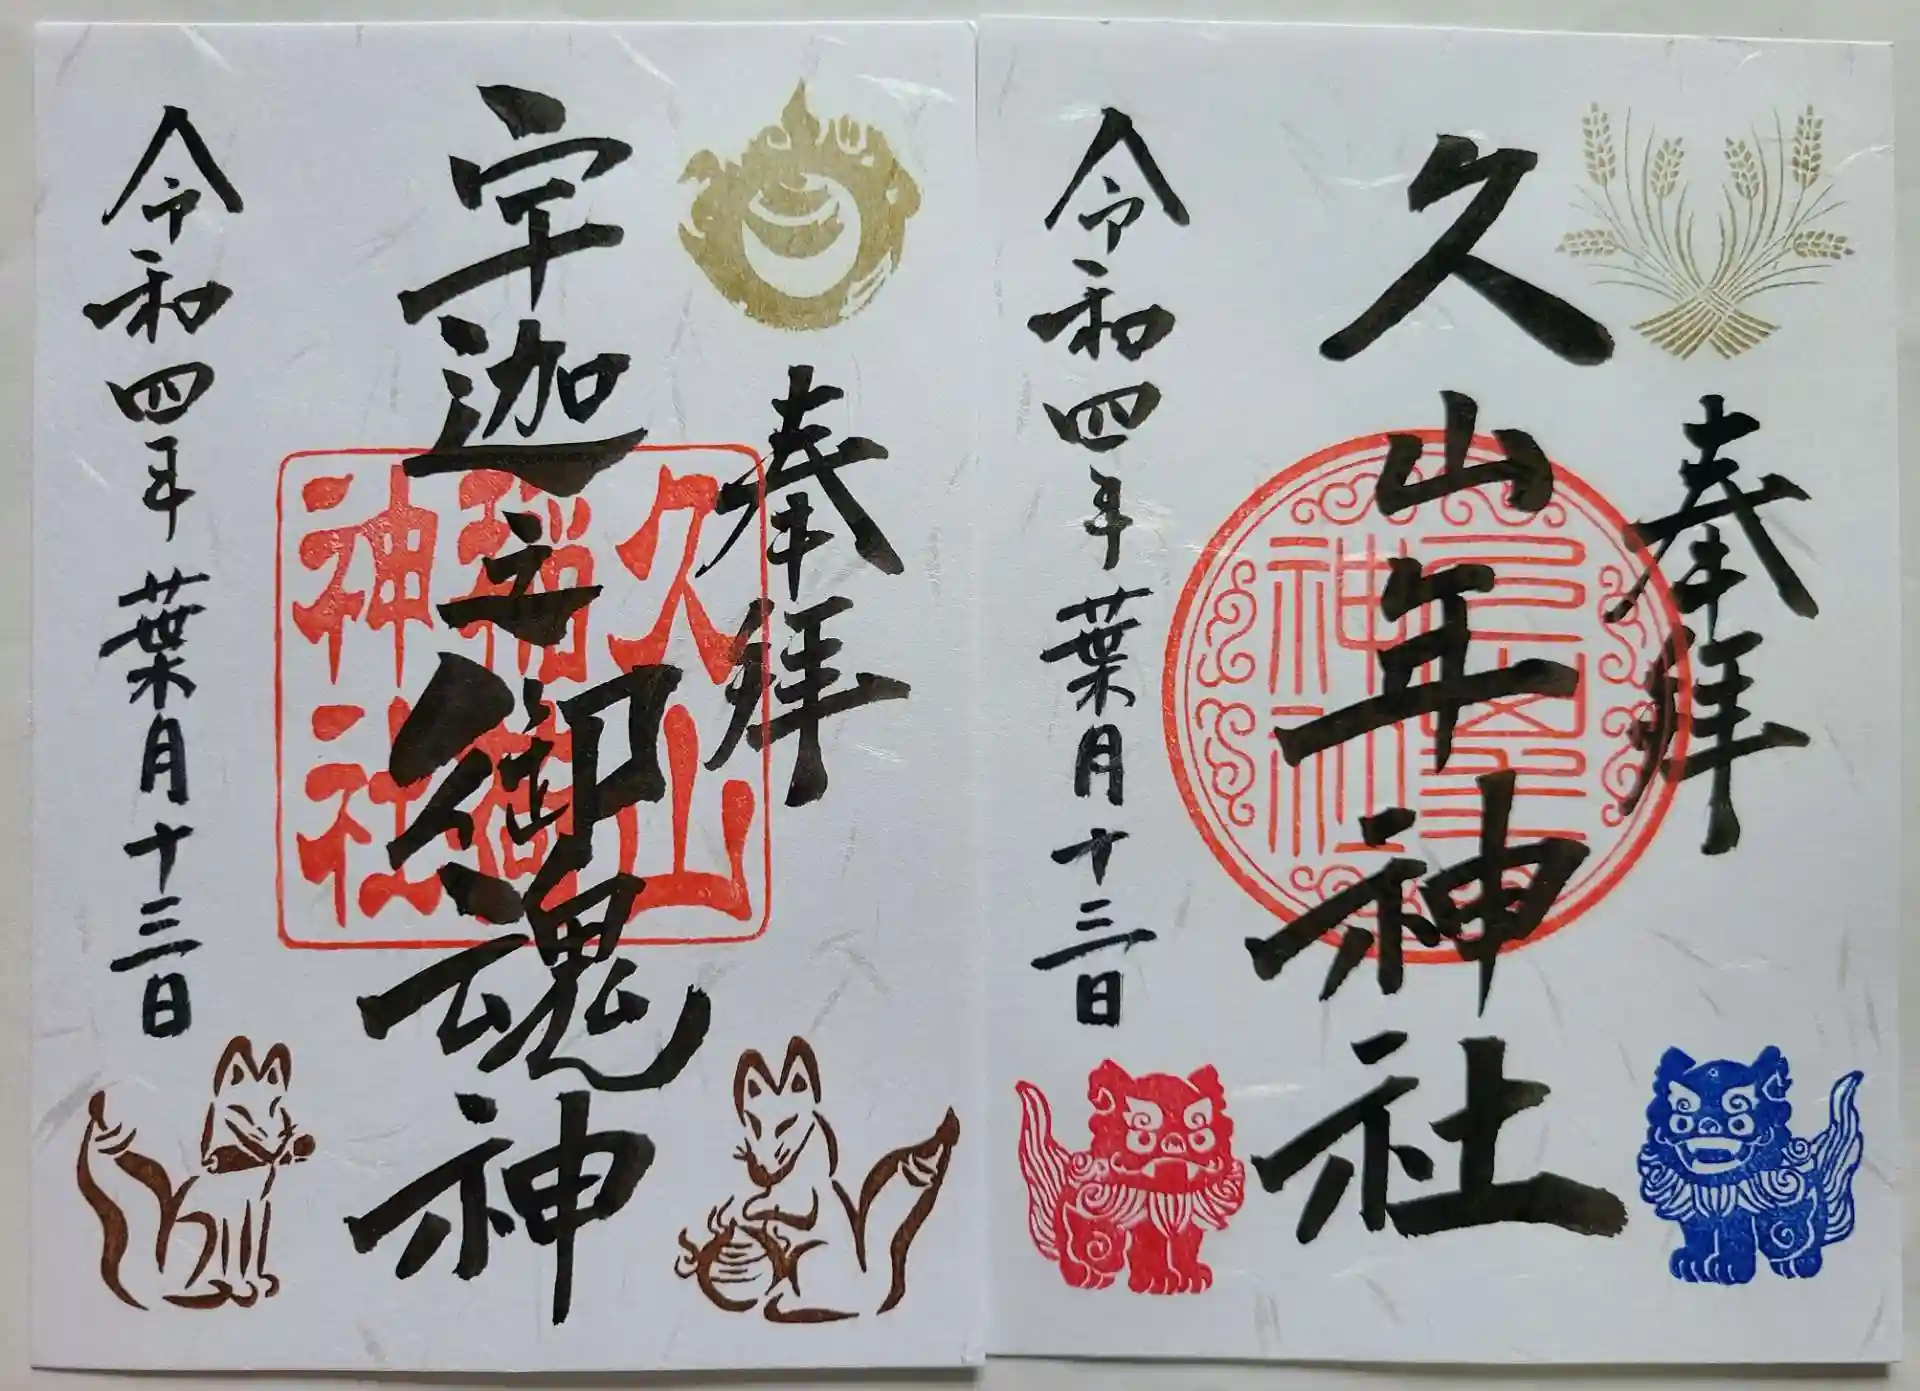 奉拝
久山年神社
令和四年葉月十三日
奉拝
宇迦之御魂神
久山
稲荷
神社
令和四年葉月十三日